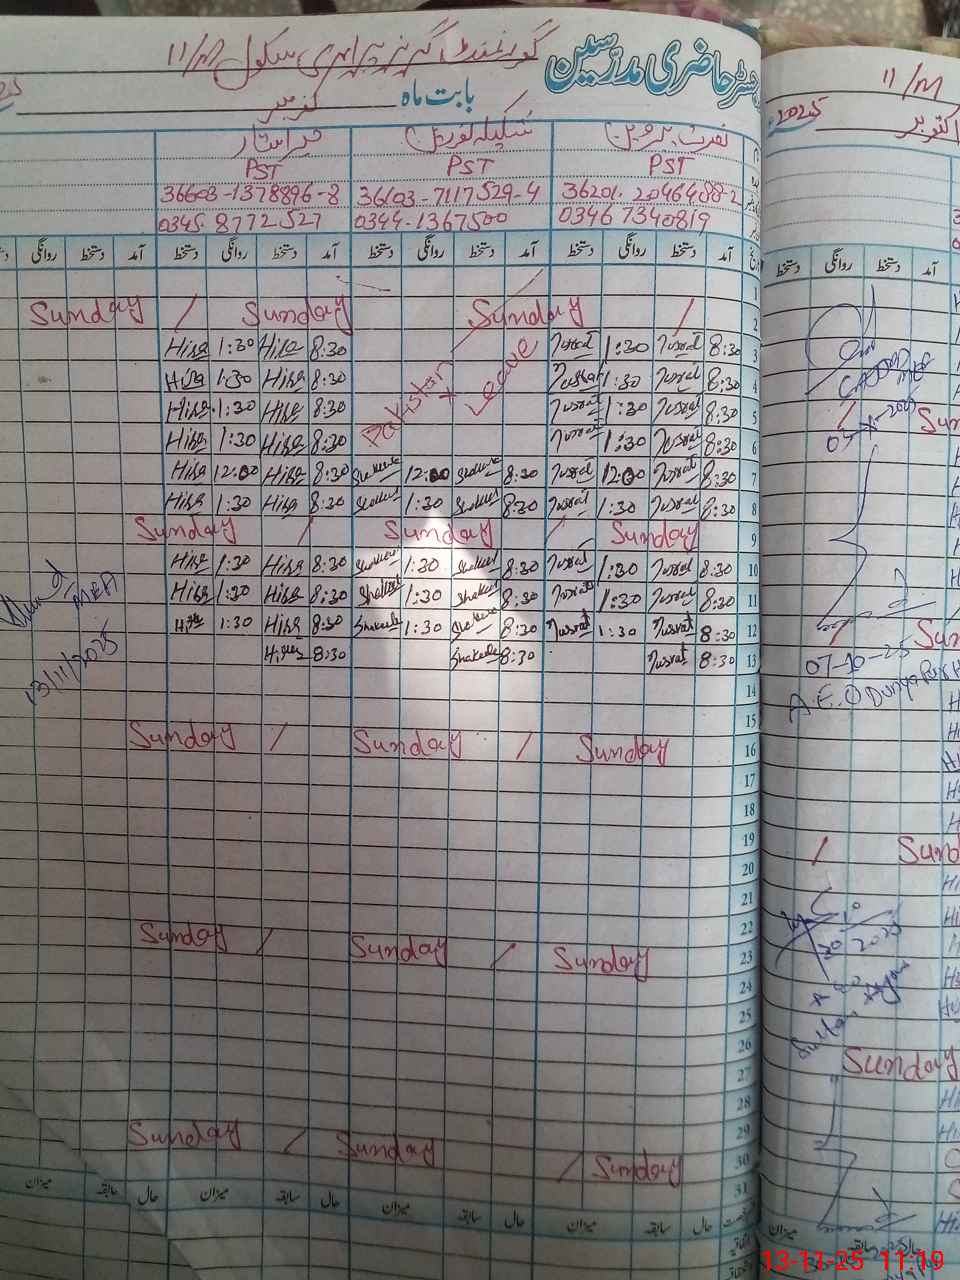 رجسٹر حاضری مدرّسین گورنمنٹ گرلز پرائمری سکول 11/M
بابت ماہ نومبر
نصرت پروین شکیلہ نورین حرا
PST PST PST
36201-2046458-2 36603-7117529-4 36603-1378896-8
0346 7340819 0344-1367500 0345-8772527
آمد دستخط روانگی دستخط آمد دستخط روانگی دستخط آمد دستخط روانگی دستخط آمد دستخط روانگی
1
2 / Sunday Sunday / Sunday
3 8:30 Nusrat 1:30 Nusrat 8:30 Hira 1:30 Hira
4 8:30 Nusrat 1:30 Nusrat 8:30 Hira 1:30 Hira
5 8:30 Nusrat 1:30 Nusrat 8:30 Hira 1:30 Hira
6 8:30 Nusrat 1:30 Nusrat 8:30 Hira 1:30 Hira
Leave
7 8:30 Nusrat 12:00 Nusrat 8:30 Shakeela 12:00 Shakeela 8:30 Hira 12:00 Hira
8 8:30 Nusrat 1:30 Nusrat 8:30 Shakeela 1:30 Shakeela 8:30 Hira 1:30 Hira
9 Sunday / Sunday / Sunday
10 8:30 Nusrat 1:30 Nusrat 8:30 Shakeela 1:30 Shakeela 8:30 Hira 1:30 Hira
11 8:30 Nusrat 1:30 Nusrat 8:30 Shakeela 1:30 Shakeela 8:30 Hira 1:30 Hira
12 8:30 Nusrat 1:30 Nusrat 8:30 Shakeela 1:30 Shakeela 8:30 Hira 1:30 Hira
13 8:30 Nusrat 8:30 Shakeela 8:30 Hira
MEA
13/11/2025
14
15
16 Sunday / Sunday / Sunday
17
18
19
20
21
22
23 Sunday / Sunday / Sunday
24
25
26
27
28
29
30 Sunday / Sunday / Sunday
31
حال سابقہ میزان حال سابقہ میزان حال سابقہ میزان حال سابقہ میزان
11/M
اکتوبر 2025
آمد دستخط روانگی دستخط
/ Sun
/ Sun
07-10-25
A.E.O Dunya Pur
/ Sund
Sunday
سابقہ میزان
13-11-25 11:19